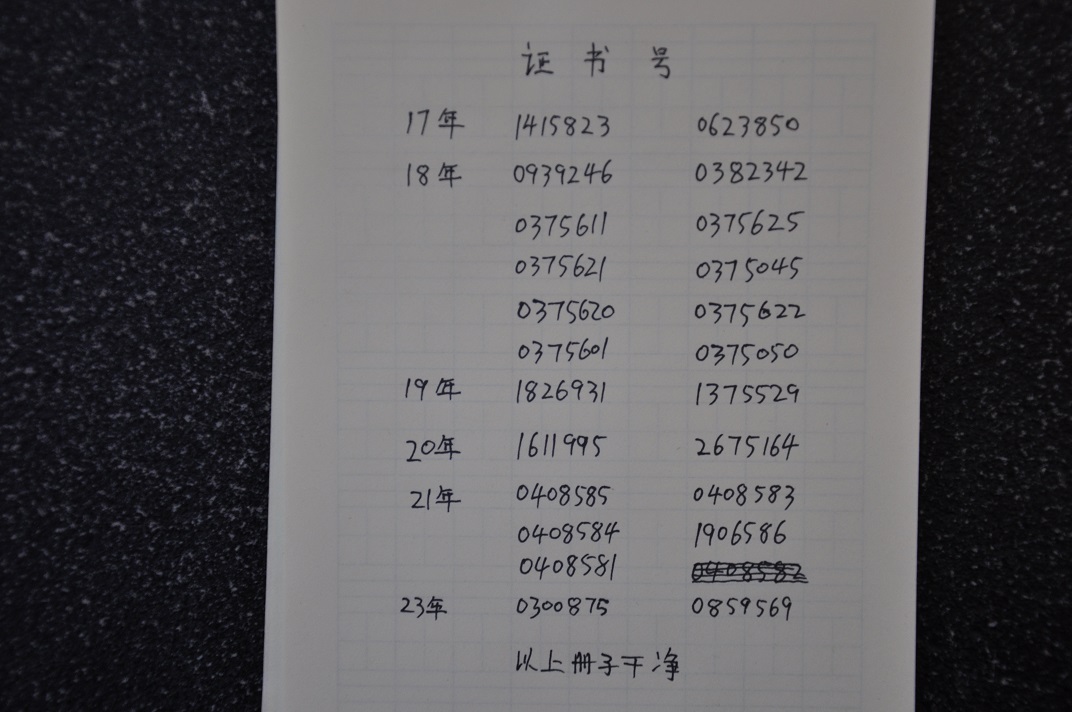 证 书 号
17年 1415823 0623850
18年 0939246 0382342
0375611 0375625
0375621 0375045
0375620 0375622
0375601 0375050
19年 1826931 1375529
20年 1611995 2675164
21年 0408585 0408583
0408584 1906586
0408581
23年 0300875 0859569
以上册子干净